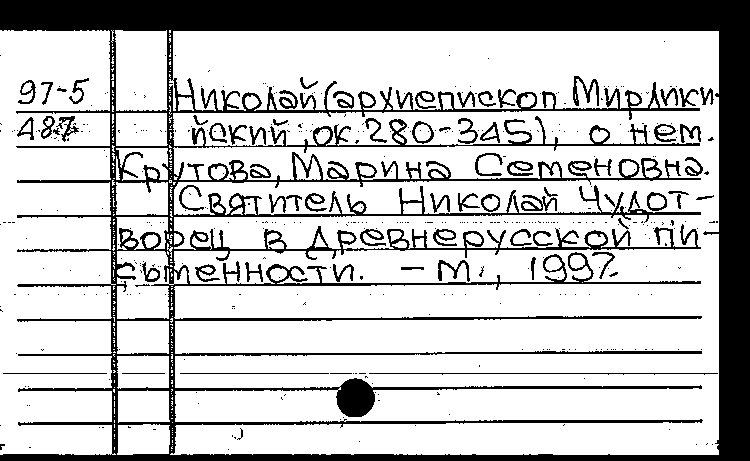 97-5 Николай (архиепископ Мирлики-
487 йский; ок. 280-345), о нем.
Крутова, Марина Семеновна.
Святитель Николай Чудот-
ворец в древнерусской пи-
сьменности. - М., 1997.